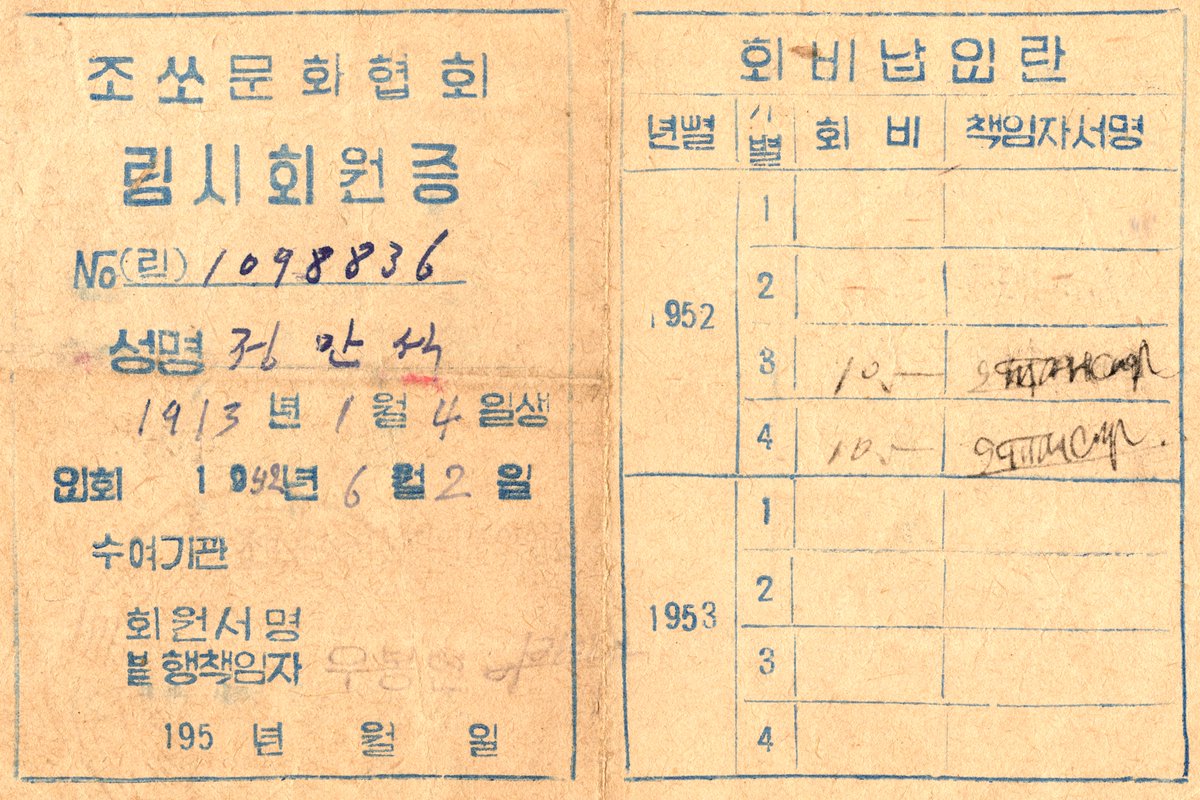 조쏘문화협회
림시회원증
No (림) 1098836
성명 정만석
1913 년 1 월 4 일생
입회 1952년 6 월 2 일
수여기관
회원서명
발행책임자
195 년 월 일
회비납입란
년별 기별 회비 책임자서명
1952
1
2
3 10.—
4 10.—
1953
1
2
3
4